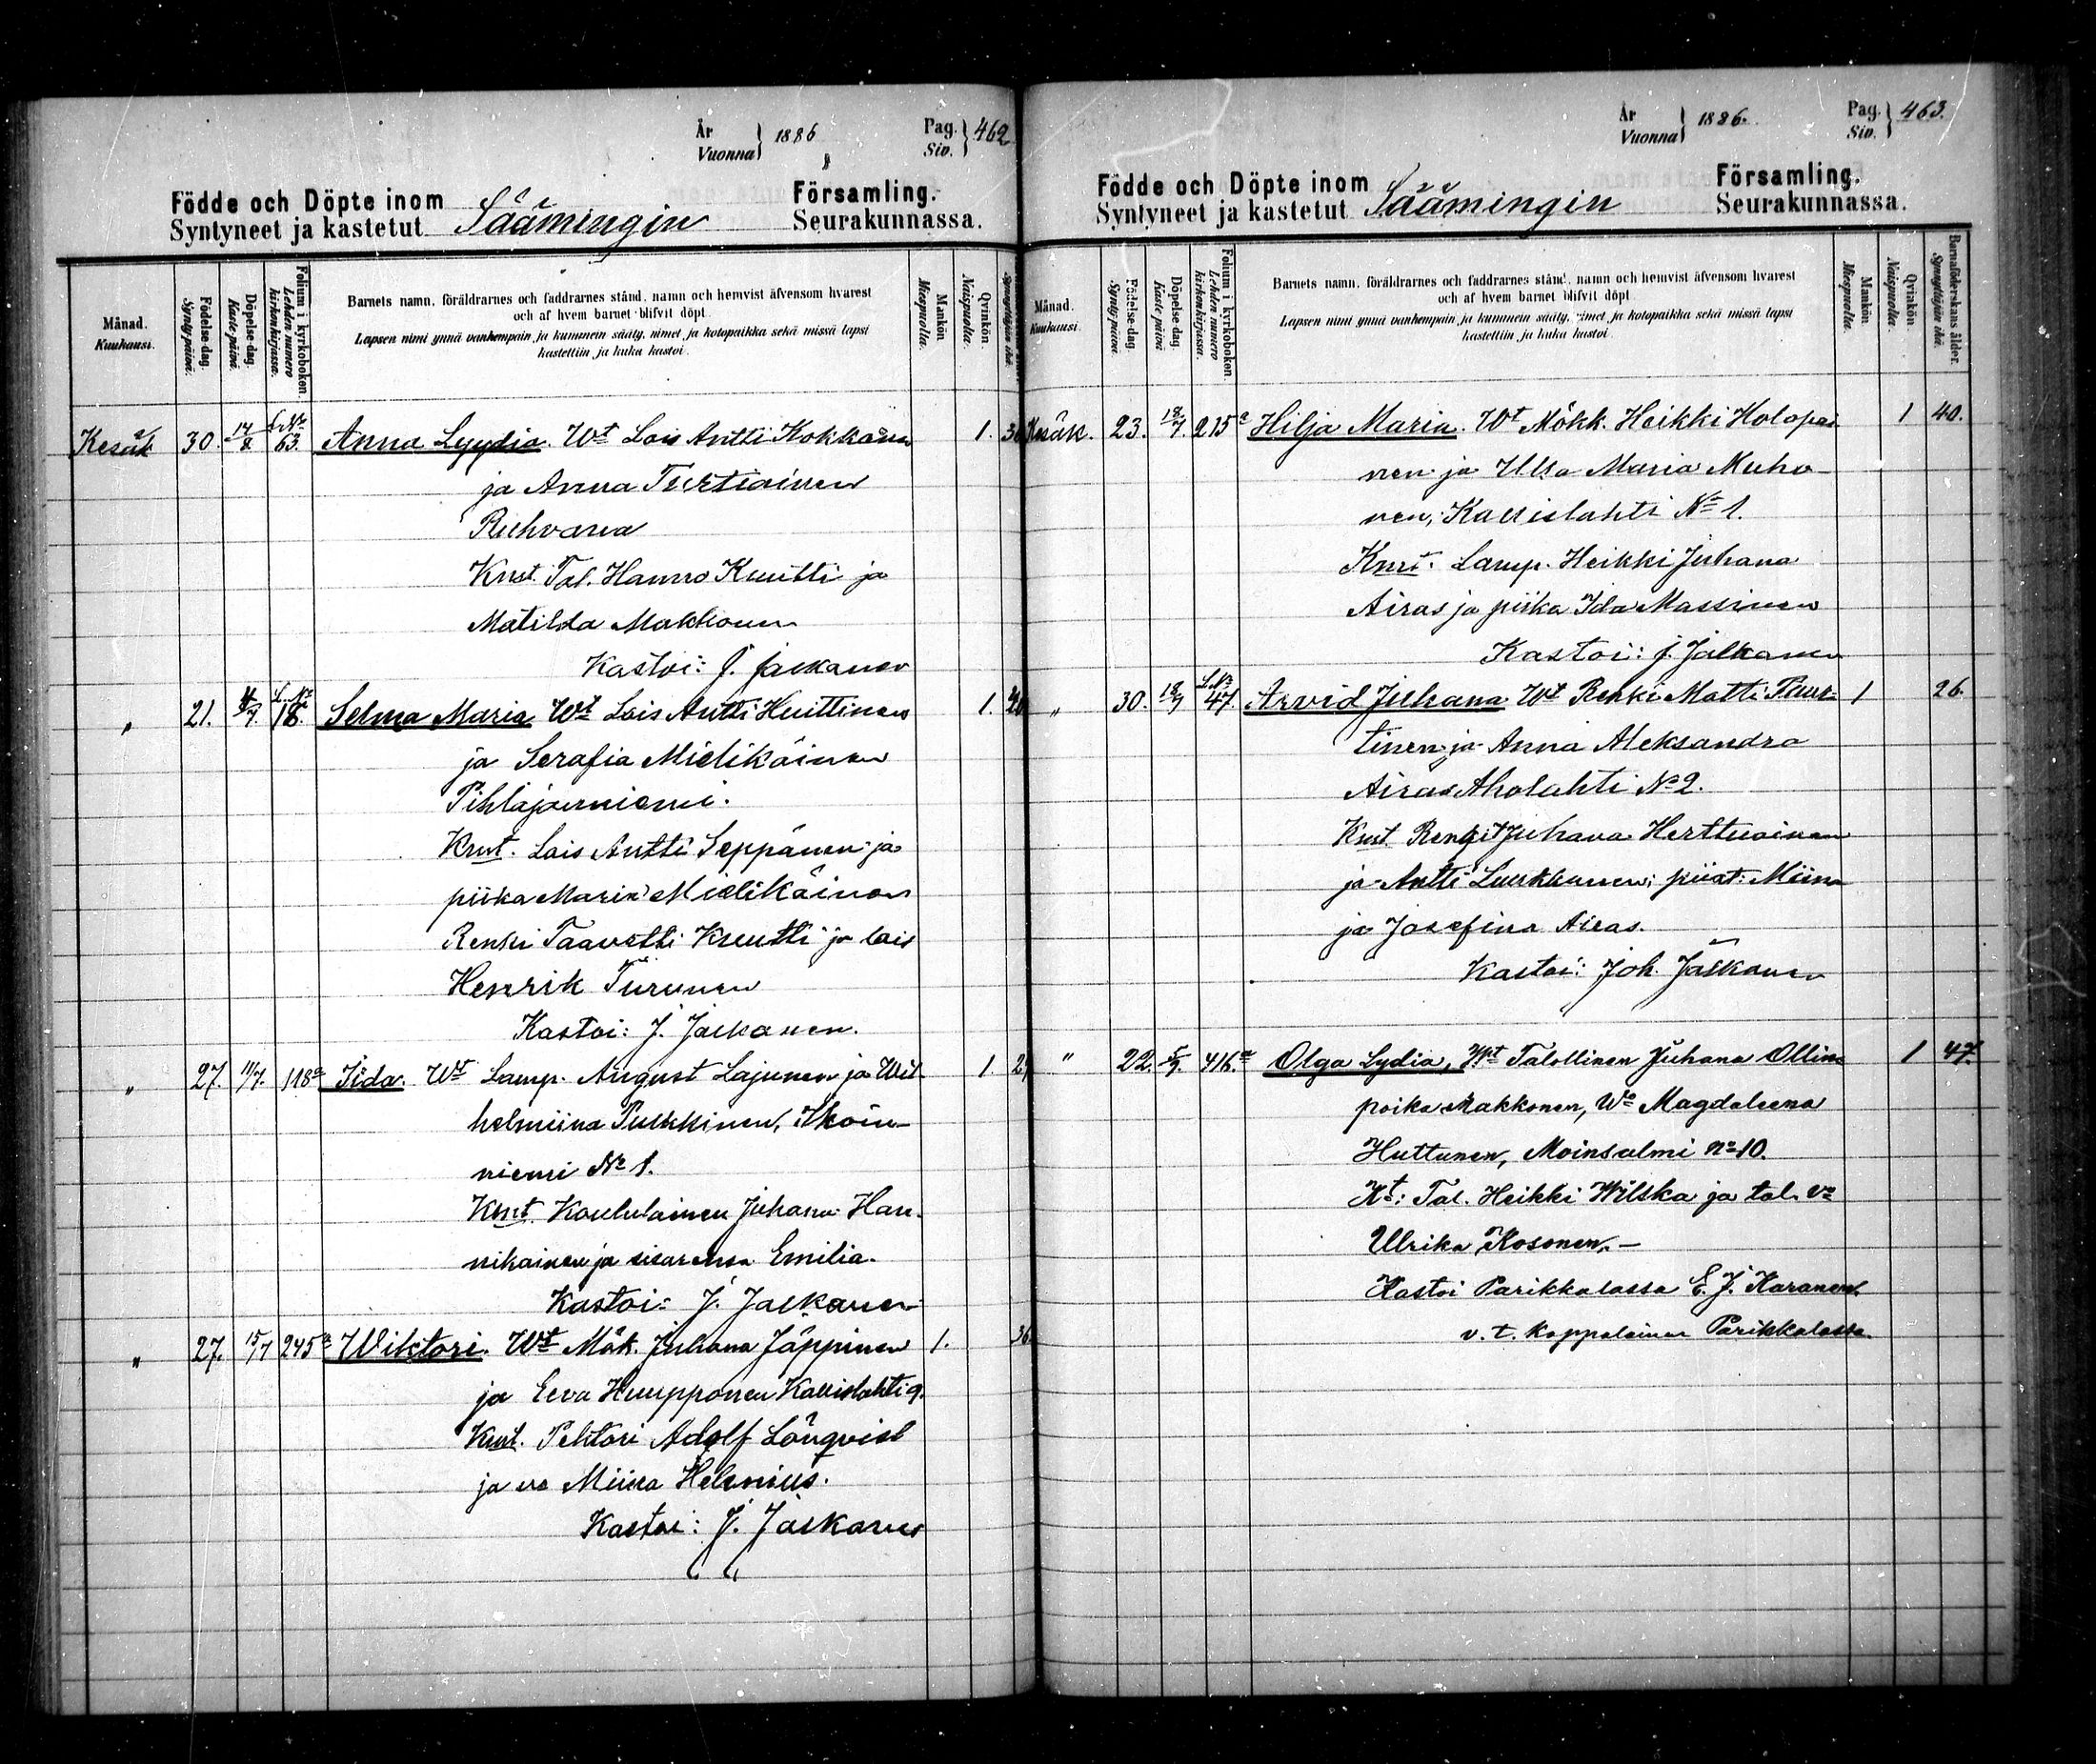 År
Vuonna } 1886
Pag.
Siv. } 462
Födde och Döpte inom
Syntyneet ja kastetut Säämingin
Församling.
Seurakunnassa.
Månad.
Kuukausi.
Födelse-dag.
Synty-päivä.
Döpelse-dag.
Kaste-päivä
Folium i kyrkoboken.
Lehden numero
kirkonkirjassa.
Barnets namn, föräldrarnes och faddrarnes stånd, namn och hemvist äfvensom hvarest
och af hvem barnet blifvit döpt.
Lapsen nimi ynnä vanhempain ja kummein sääty, nimet ja kotopaikka sekä missä lapsi
kastettiin ja kuka kastoi.
Mankön
Miespuolia.
Qvinkön.
Naispuolia.
Kesäk 30. 14/8. L.No 63. Anna Lyydia. Wt Lois Antti Kokkonen 1.
ja Anna Turtiainen
Ruhvana
Kust. Tal. Hanno Kuutti ja
Matilda Makkonen
Kastoi: J. Jalkanen
" 21. 4/7. L.No 18. Selma Maria Wt Lois Antti Huittinen 1.
ja Serafia Mielikäinen
Pihlajaniemi.
Kust. Lois Antti Seppänen ja
piika Maria Mielikäinen
Renki Taavetti Kuutti ja lois
Henrik Turunen
Kastoi: J. Jalkanen.
" 27. 11/7. 118a Iida. Wt Lamp. August Lajunen ja Wil-
helmiina Pulkkinen, Ikoin-
niemi No 1.
Kust. Koululainen Juhana Han-
nikainen ja sisarensa Emilia.
Kastoi: J. Jalkanen
" 27. 15/7 245a Wiktori. Wt Mök. Juhana Jäppinen 1. 36
ja Eeva Huupponen Kallislahti 9.
Kust. Pehtori Adolf Lönqvist
ja vo Miina Helenius.
Kastoi: J. Jalkanen
År
Vuonna } 1886.
Pag.
Siv. } 463.
Födde och Döpte inom
Syntyneet ja kastetut Säämingin
Församling.
Seurakunnassa.
Månad.
Kuukausi.
Födelse-dag.
Synty-päivä.
Döpelse-dag.
Kaste-päivä
Folium i kyrkoboken.
Lehden numero
kirkonkirjassa.
Barnets namn, föräldrarnes och faddrarnes stånd, namn och hemvist äfvensom hvarest
och af hvem barnet blifvit döpt.
Lapsen nimi ynnä vanhempain ja kummein sääty, nimet ja kotopaikka sekä missä lapsi
kastettiin ja kuka kastoi.
Mankön
Miespuolia.
Qvinkön.
Naispuolia.
Barnaföderskans ålder.
Synnyttäjän ikä.
Kesäk. 23. 18/7. 215a Hilja Maria. Wt Mökk. Heikki Holopai 1 40.
nen ja Ulla Maria Muho-
nen, Kallislahti No 1.
Kust. Lamp. Heikki Juhana
Airas ja piika Ida Massinen
Kastoi: J. Jalkanen
" 30. 18/7 L.No 47. Arvid Juhana Wt Renki Matti Paur- 1 26.
tinen ja Anna Aleksandra
Airas Aholahti No 2.
Kust. Rengit Juhana Herttuainen
ja Antti Luukkanen; piiat: Miina
ja Josefina Airas.
Kastoi: Joh. Jalkanen
" 22. 5/9. 416.a Olga Lydia, Wt Talollinen Juhana Ollin 1 47.
poika Makkonen, Wo Magdaleena
Huttunen, Moinsalmi no 10.
Kt: Tal. Heikki Wilska ja tal. vo
Ulrika Kosonen.—
Kastoi Parikkalassa E. J. Karanen.
v. t. kappalainen Parikkalassa.